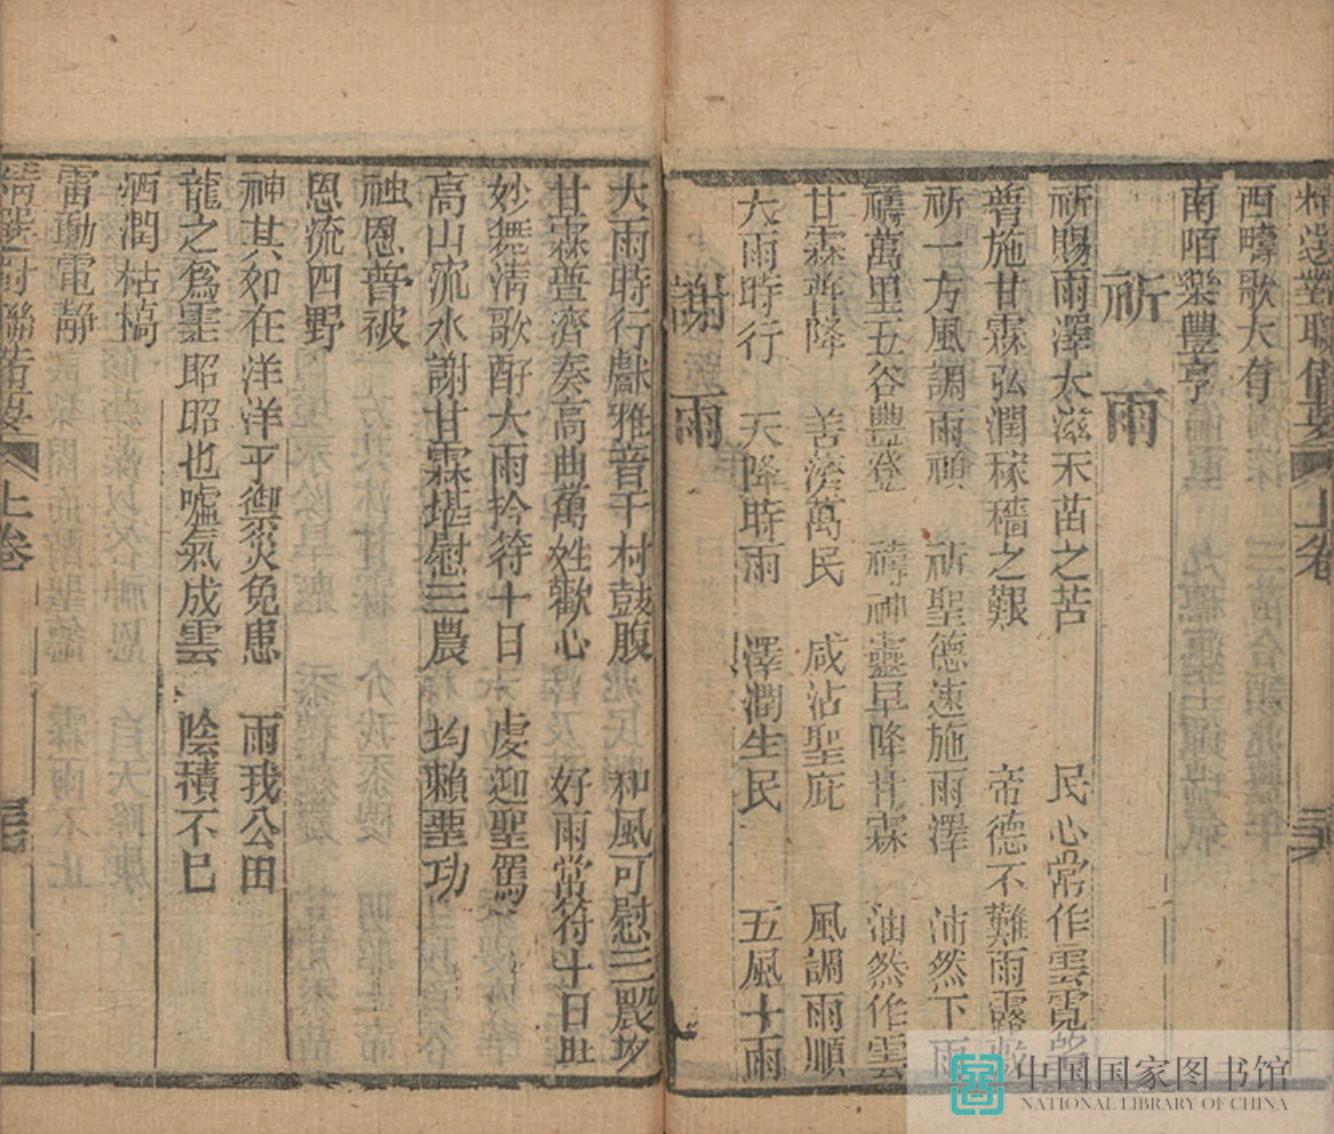 西疇歌大有
南陌樂豐亨
祈雨
祈賜雨澤大滋禾苗之苦 民心常作雲霓
普施甘霖弘潤稼穡之艱 帝德不難雨露
祈一方風調雨順 祈聖德速施雨澤 沛然下雨
禱萬里五谷豐登 禱神靈早降甘霖 油然作雲
甘霖普降 善濟萬民 咸沾聖庇 風調雨順
大雨時行 天降時雨 澤潤生民 五風十雨
謝雨
大雨時行獻雅音千村鼓腹 和風可慰三農
甘霖普濟奏高曲萬姓歡心 好雨常符十日
妙舞清歌酧大雨於符十日 虔迎聖駕
高山流水謝甘霖堪慰三農 均賴聖功
神恩普被
恩流四野
神其如在洋洋乎禦災免患 雨我公田
龍之為靈昭昭也噓氣成雲 陰積不已
洒潤枯槁
雷動電靜
精選對聯 上卷
中国国家图书馆
NATIONAL LIBRARY OF CHINA